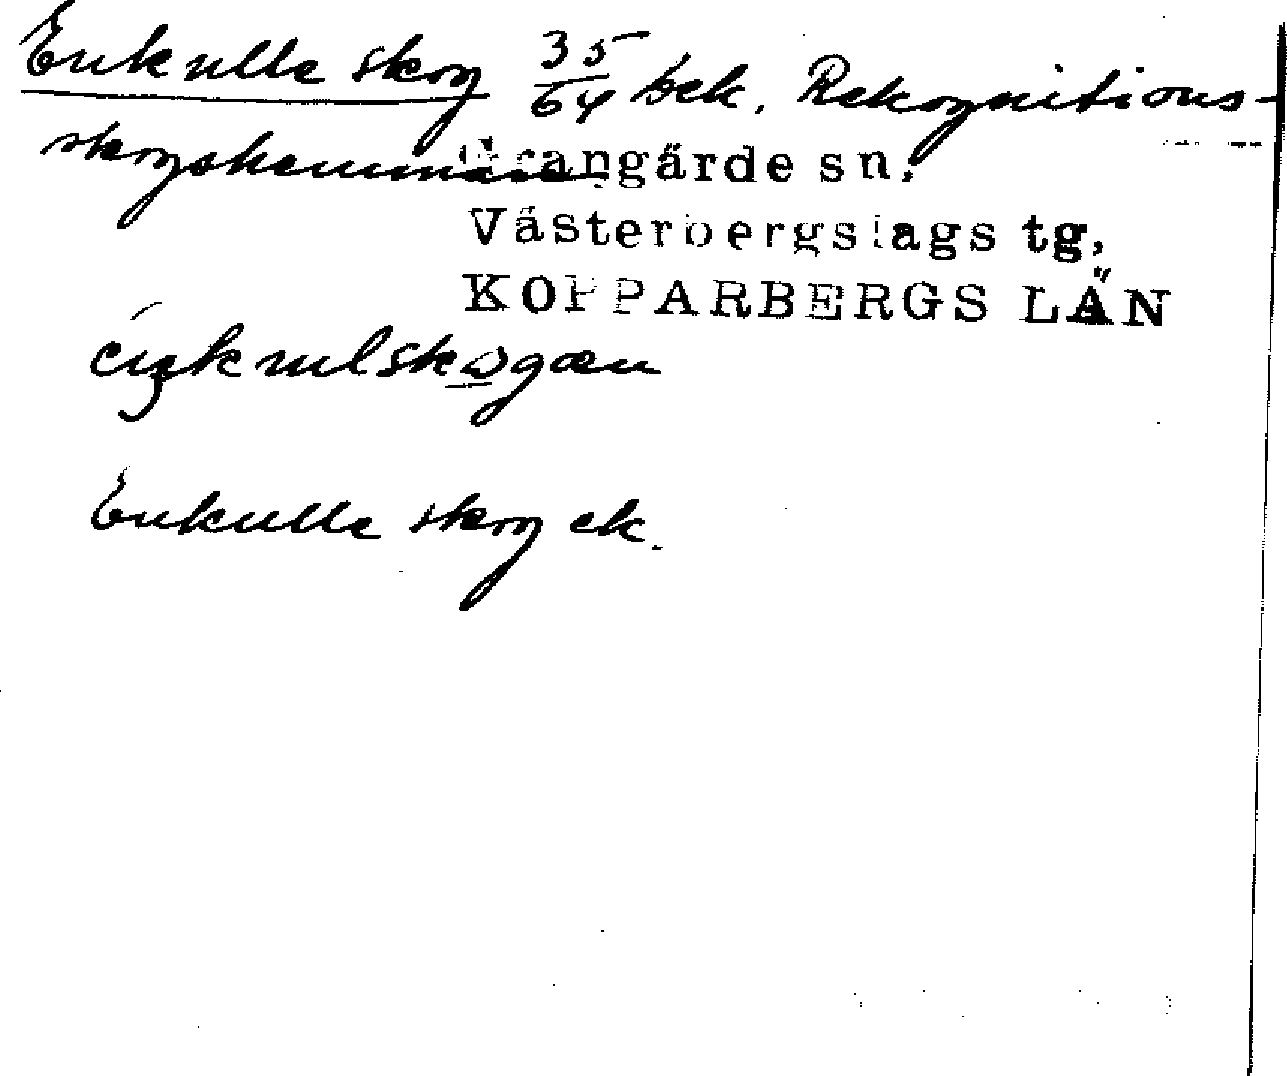 Enkulla skog 35/64 bek. Rekognitions-
skogshemman
Grangärde sn.
Västerbergslags tg,
KOPPARBERGS LÄN
Enkulla skog ek.